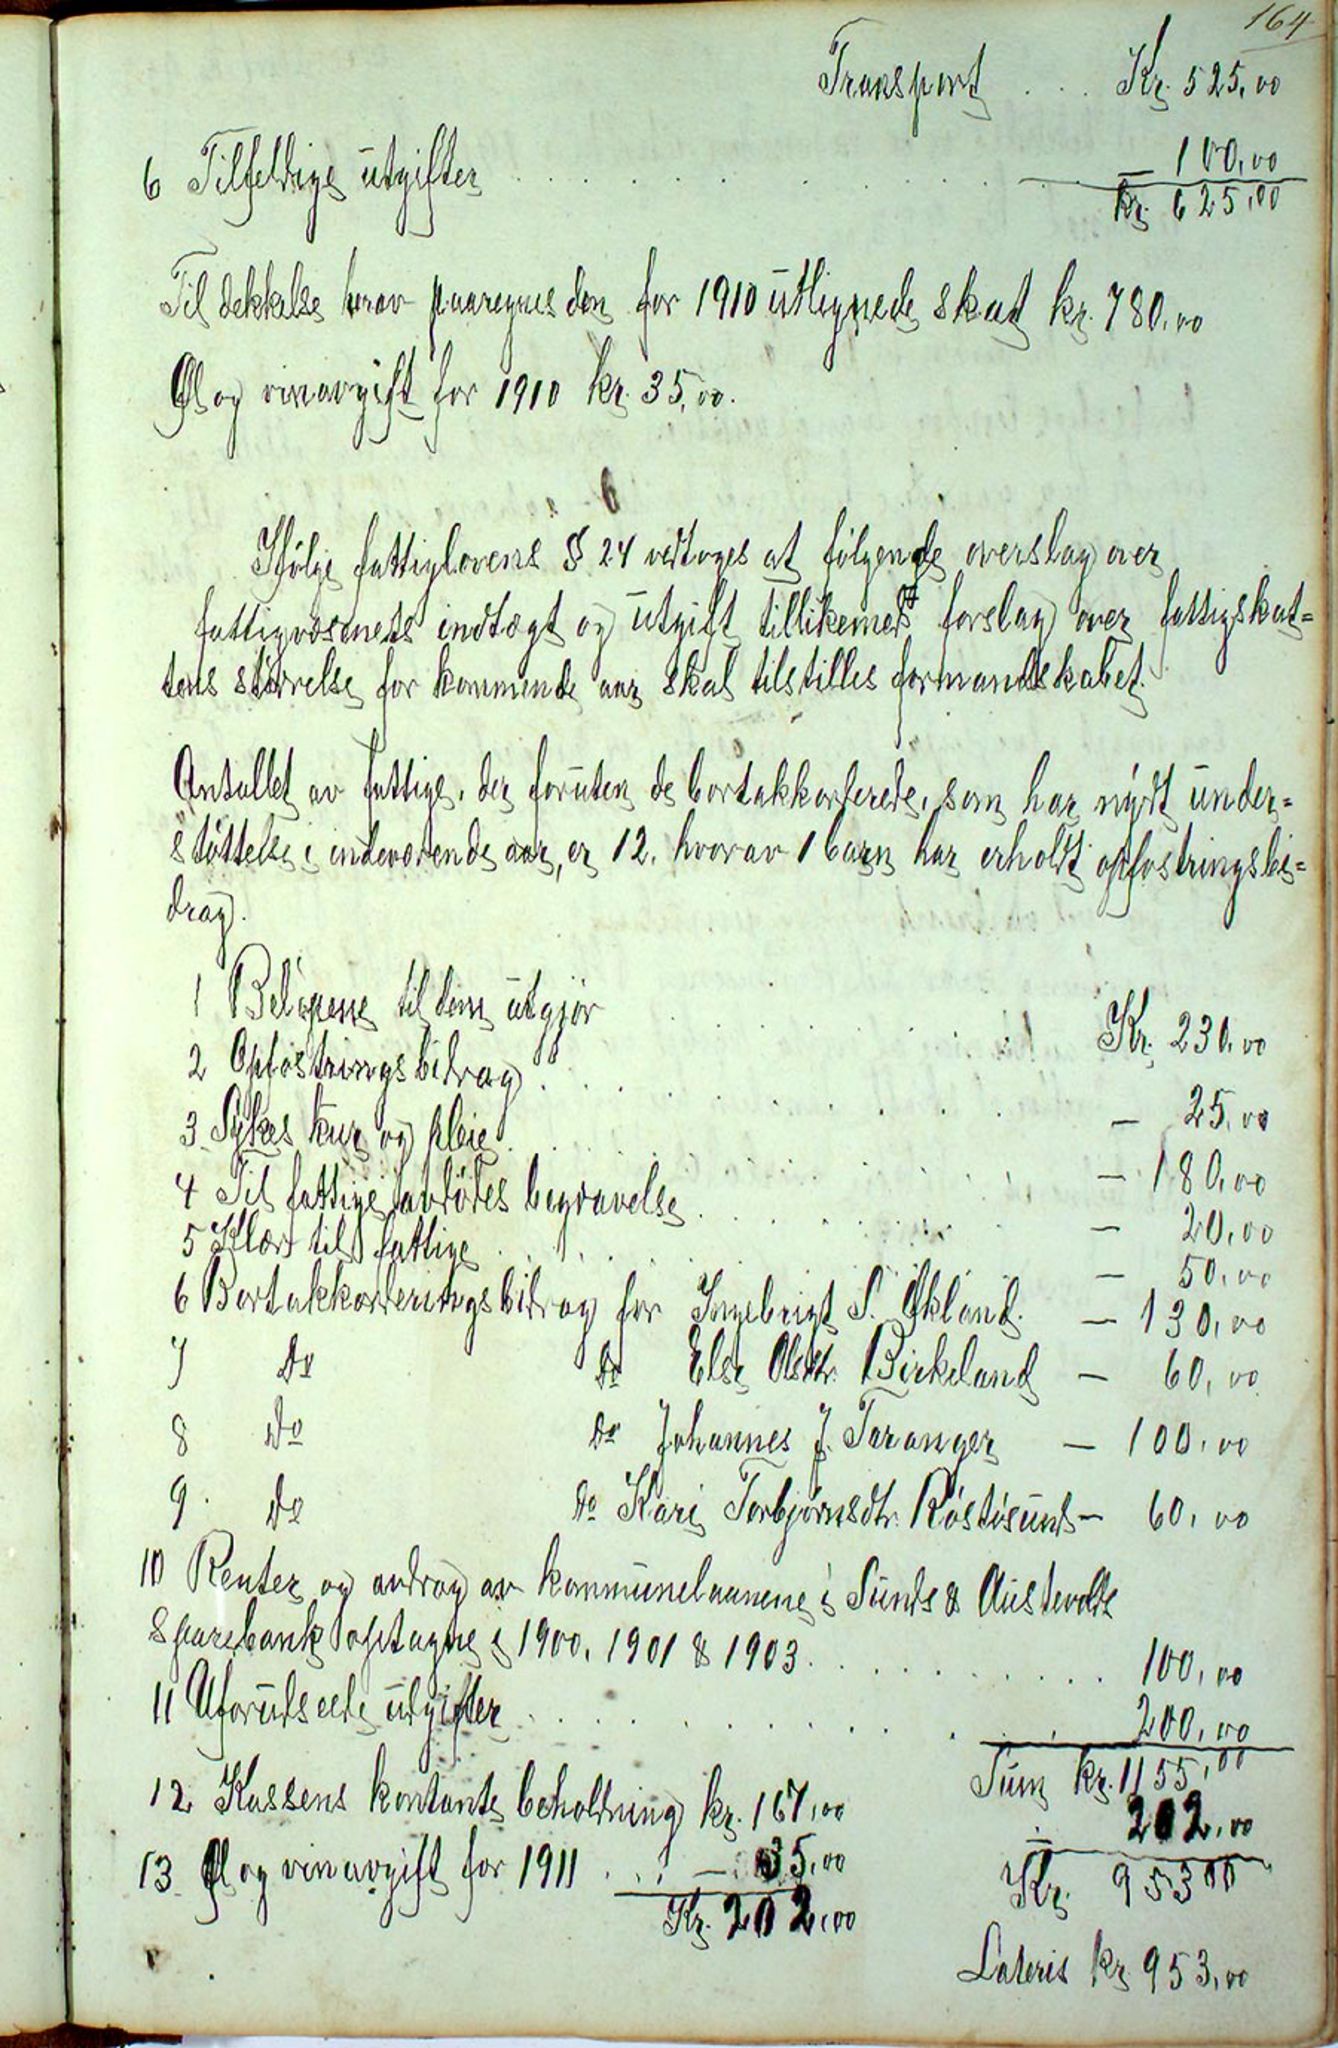 164
Transport . . . Kr. 525,00
6 Tilfeldige utgifter . . . . . . . . . . . — 100,00
Kr. 625,00
Til dekkelse herav paaregnes den for 1910 utlignede skat kr. 780,00
Øl og vinavgift for 1910 kr. 35,00.
6
Ifølge fattiglovens § 24 vedtoges at følgende overslag over
fattigvæsenets indtægt og utgift tillikemed forslag over fattigskat=
tens størrelse for kommende aar skal tilstilles formandskabet.
Antallet av fattige, der foruten de bortakkorderede, som har nydt under=
støttelse i indeværende aar, er 12, hvorav 1 barn har erholdt opfostringsbi=
drag.
1 Beløpene til dem utgjør . . . . . . Kr. 230,00
2 Opfostringsbidrag . . . . . . . . . — 25,00
3 Sykes kur og pleie . . . . . . . . — 180,00
4 Til fattige avdødes begravelse . . . . . . — 20,00
5 Klær til fattige . . . . . . . . — 50,00
6 Bortakkorderingsbidrag for Ingebrigt S. Økland. — 130,00
7 do do Else Olsdtr. Birkeland — 60,00
8 do do Johannes J. Taranger — 100,00
9. do do Kari Torbjørnsdtr. Røstøsund — 60,00
10 Renter og avdrag av kommunelaanene i Sunds & Austevolds
Sparebank optagne i 1900, 1901 & 1903 . . . . . . . . . 100,00
11 Uforutseede utgifter . . . . . . . . . . 200,00
Sum kr. 1155,00
12 Kassens kontante beholdning kr. 167,00
— 202,00
13 Øl og vinavgift for 1911 . . . — 35,00
Kr. 953 00
Kr. 202,00
Lateris kr 953,00